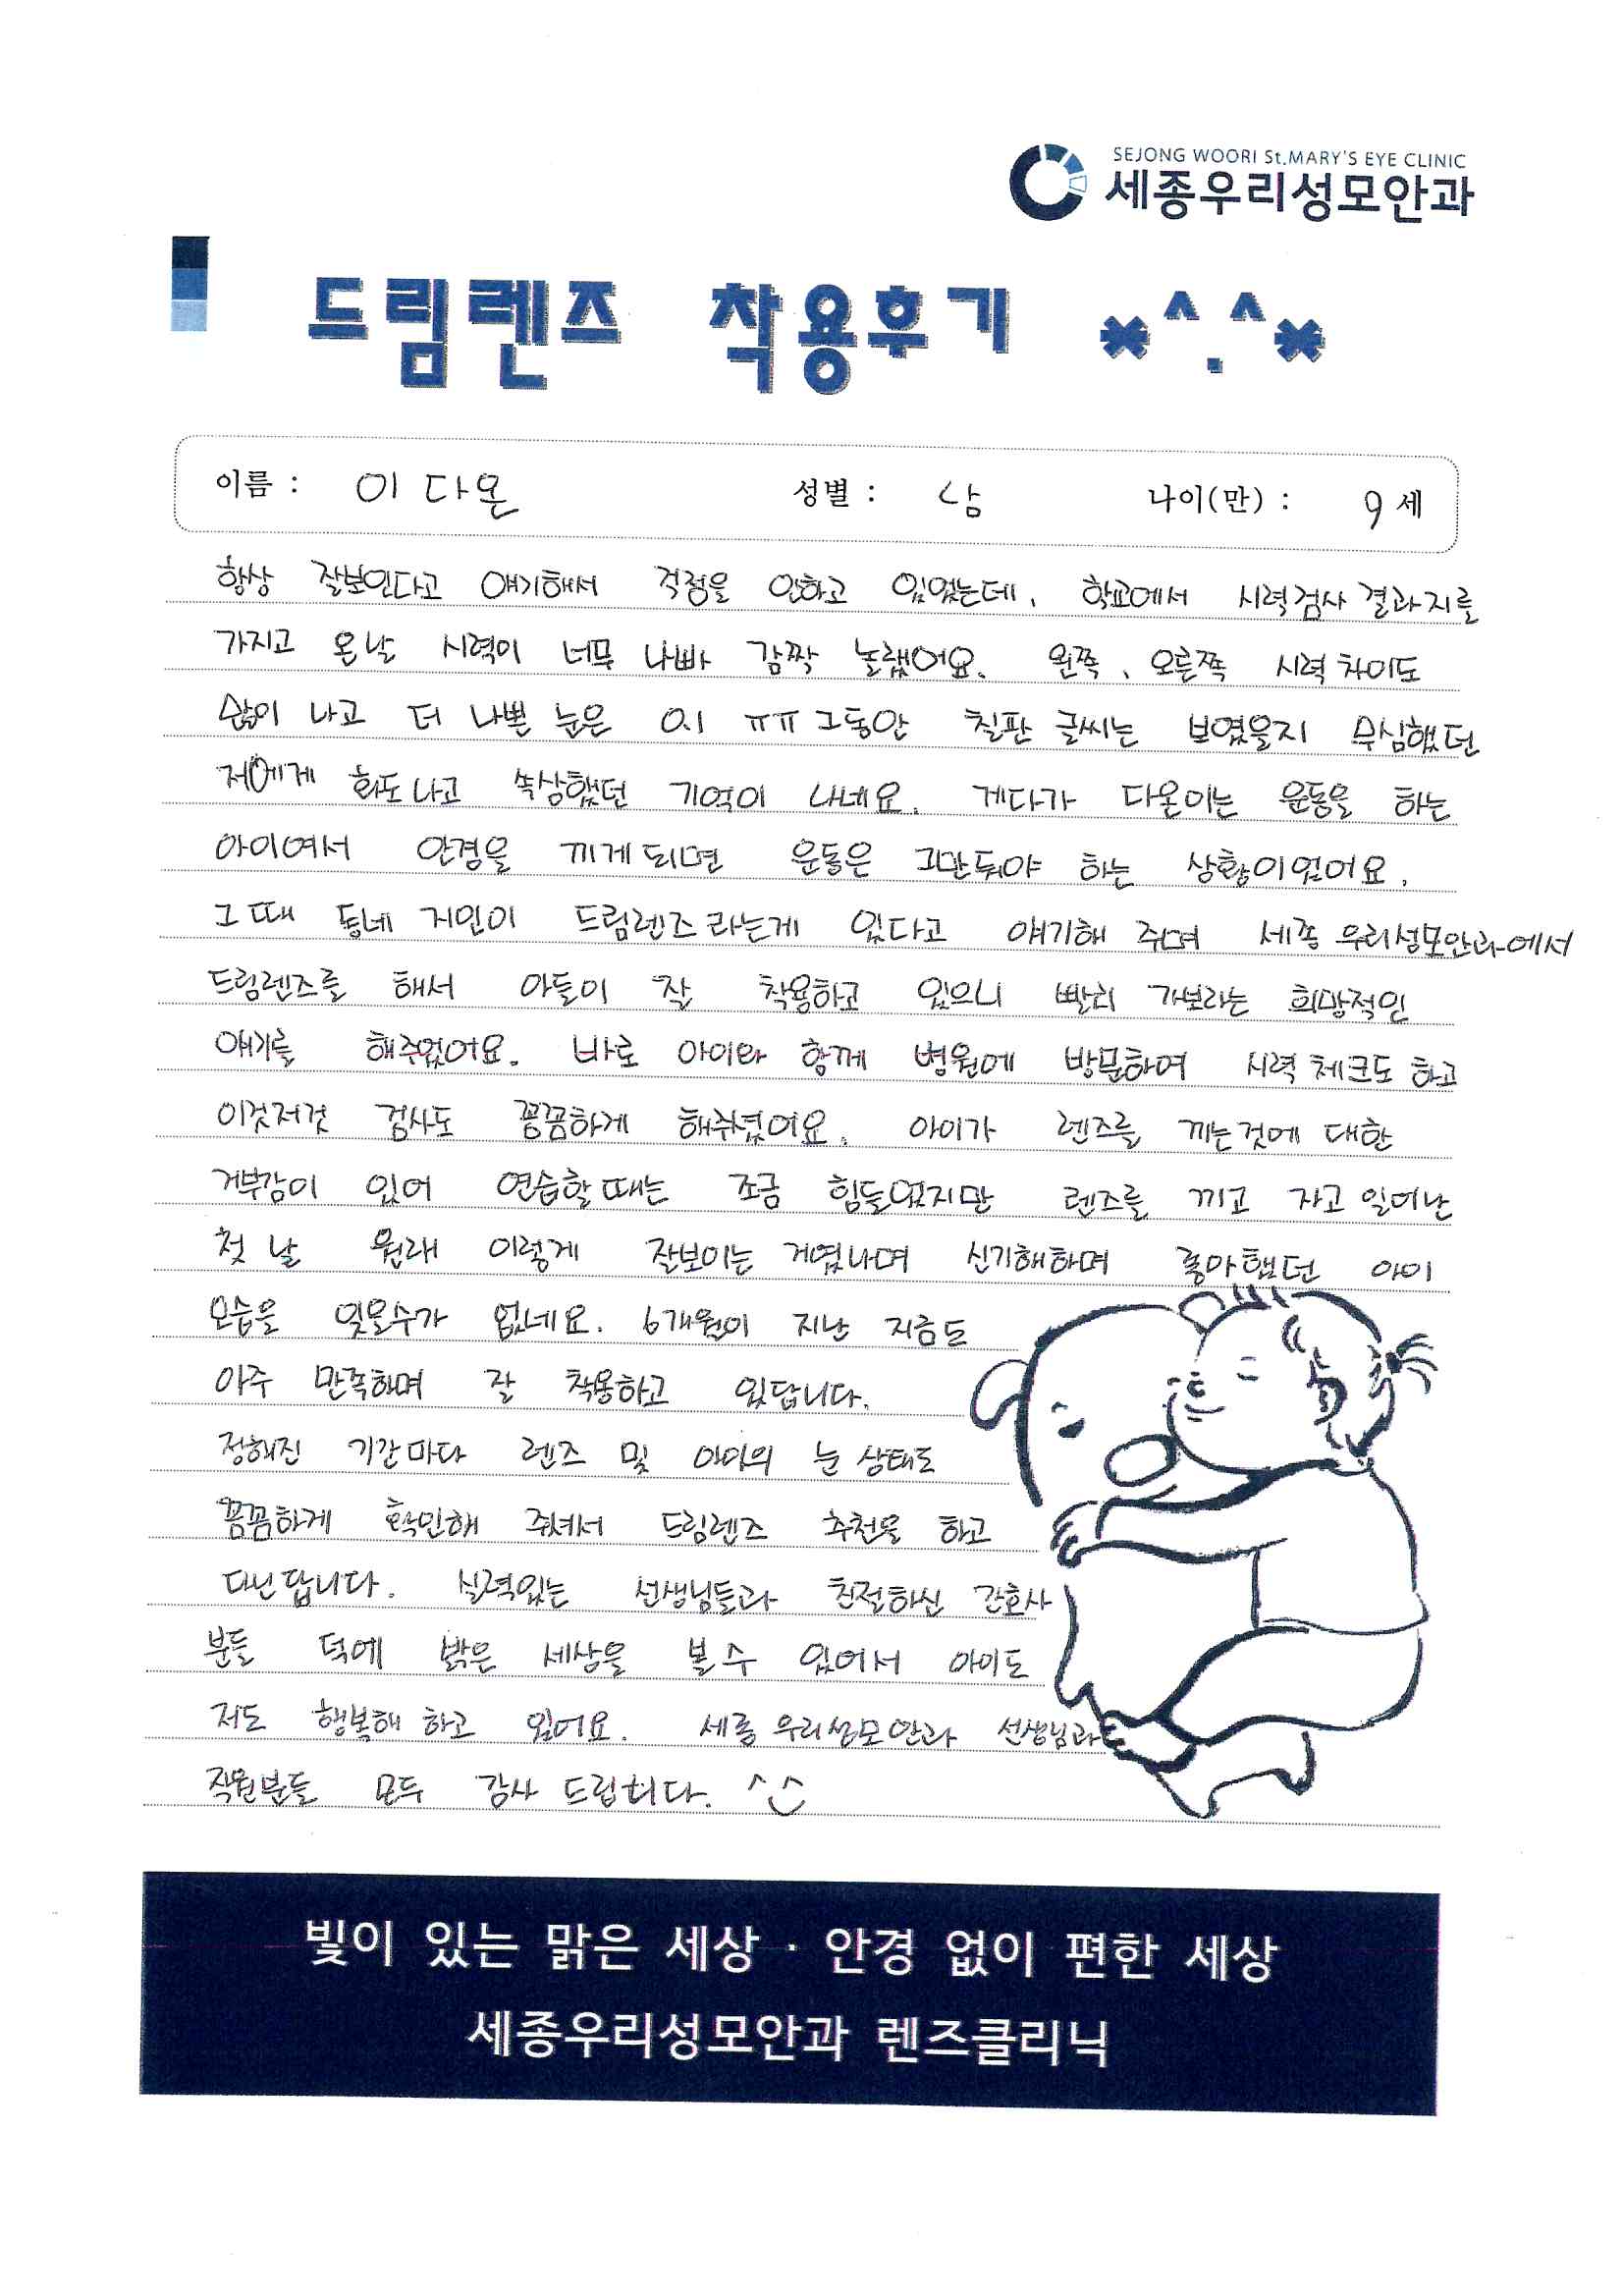 SEJONG WOORI St.MARY'S EYE CLINIC
세종우리성모안과
드림렌즈 착용후기 *^.^*
이름 : 이다온 성별 : 남 나이(만) : 9세
항상 잘보인다고 얘기해서 걱정을 안하고 있었는데, 학교에서 시력검사 결과지를
가지고 온날 시력이 너무 나빠 깜짝 놀랬어요. 왼쪽, 오른쪽 시력 차이도
많이 나고 더 나쁜 눈은 0.1 ㅠㅠ 그동안 칠판 글씨는 보였을지 무심했던
저에게 화도나고 속상했던 기억이 나네요. 게다가 다온이는 운동을 하는
아이여서 안경을 끼게되면 운동은 그만둬야 하는 상황이었어요.
그때 동네 지인이 드림렌즈라는게 있다고 얘기해 주며 세종우리성모안과에서
드림렌즈를 해서 아들이 잘 착용하고 있으니 빨리 가보라는 희망적인
얘기를 해주었어요. 바로 아이와 함께 병원에 방문하여 시력 체크도 하고
이것저것 검사도 꼼꼼하게 해주셨어요. 아이가 렌즈를 끼는것에 대한
거부감이 있어 연습할때는 조금 힘들었지만 렌즈를 끼고 자고 일어난
첫 날 원래 이렇게 잘보이는 거였냐며 신기해하며 좋아했던 아이
모습을 잊을수가 없네요. 6개월이 지난 지금도
아주 만족하며 잘 착용하고 있답니다.
정해진 기간마다 렌즈 및 아이의 눈 상태도
꼼꼼하게 확인해 주셔서 드림렌즈 추천을 하고
다닌답니다. 실력있는 선생님들과 친절하신 간호사
분들 덕에 밝은 세상을 볼 수 있어서 아이도
저도 행복해 하고 있어요. 세종우리성모안과 선생님과
직원분들 모두 감사 드립니다. ^^
빛이 있는 맑은 세상 · 안경 없이 편한 세상
세종우리성모안과 렌즈클리닉